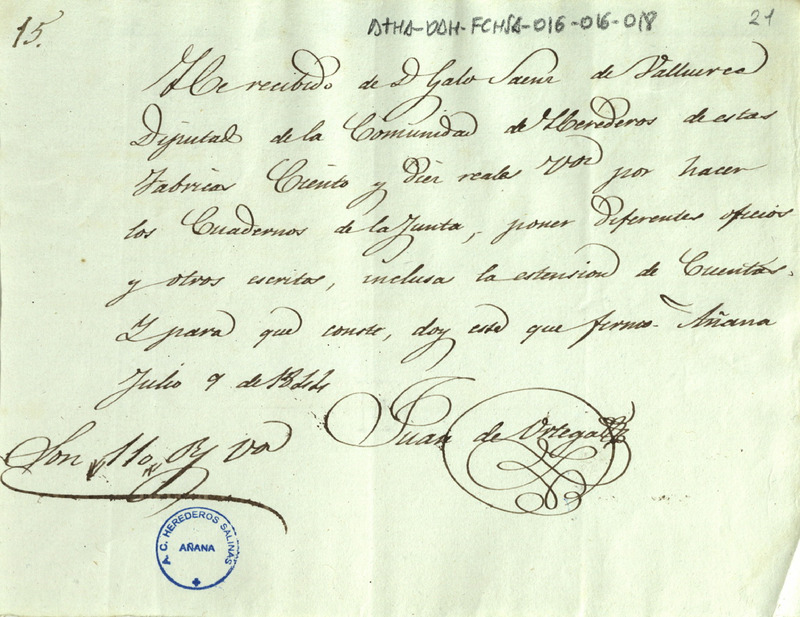 15.
ATHA-DAH-FCHSA-016-016-018
21
He recibido de D Galo Saenz de Valluerca
Diputad de la Comunidad de Herederos de estas
Fabricas Ciento y diez reales Von por hacer
los Cuadernos de la Junta, poner diferentes oficios
y otros escritos, inclusa la estension de Cuentas.
Y para que conste, doy este que firmo. Añana
Julio 9 de 1844
Juan de Ortega
Son 110 Rs Von
A. C. HEREDEROS SALINAS
AÑANA